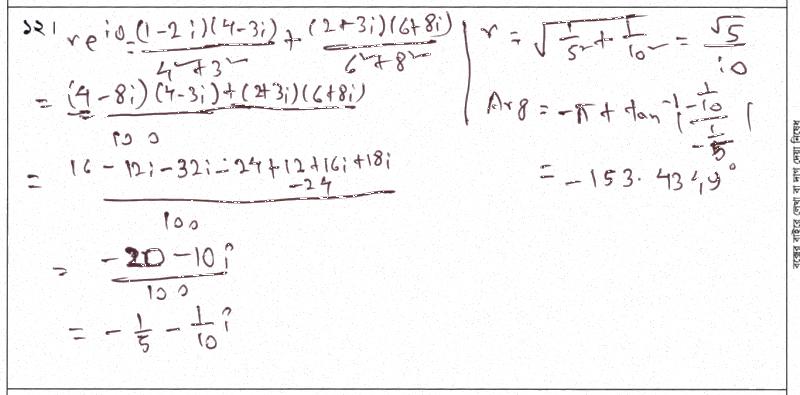 ১২। re^iθ = (1-2i)(4-3i)/(4²+3²) + (2+3i)(6+8i)/(6²+8²)
= (4-8i)(4-3i)+(2+3i)(6+8i)/100
= 16-12i-32i-24+12+16i+18i-24/100
= -20-10i/100
= -1/5 - 1/10 i
r = √(1/5² + 1/10²) = √5/10
Arg = -π + tan⁻¹ |(-1/10)/(-1/5)|
= -153.4349°
বক্সের বাইরে লেখা বা দাগ দেয়া নিষেধ